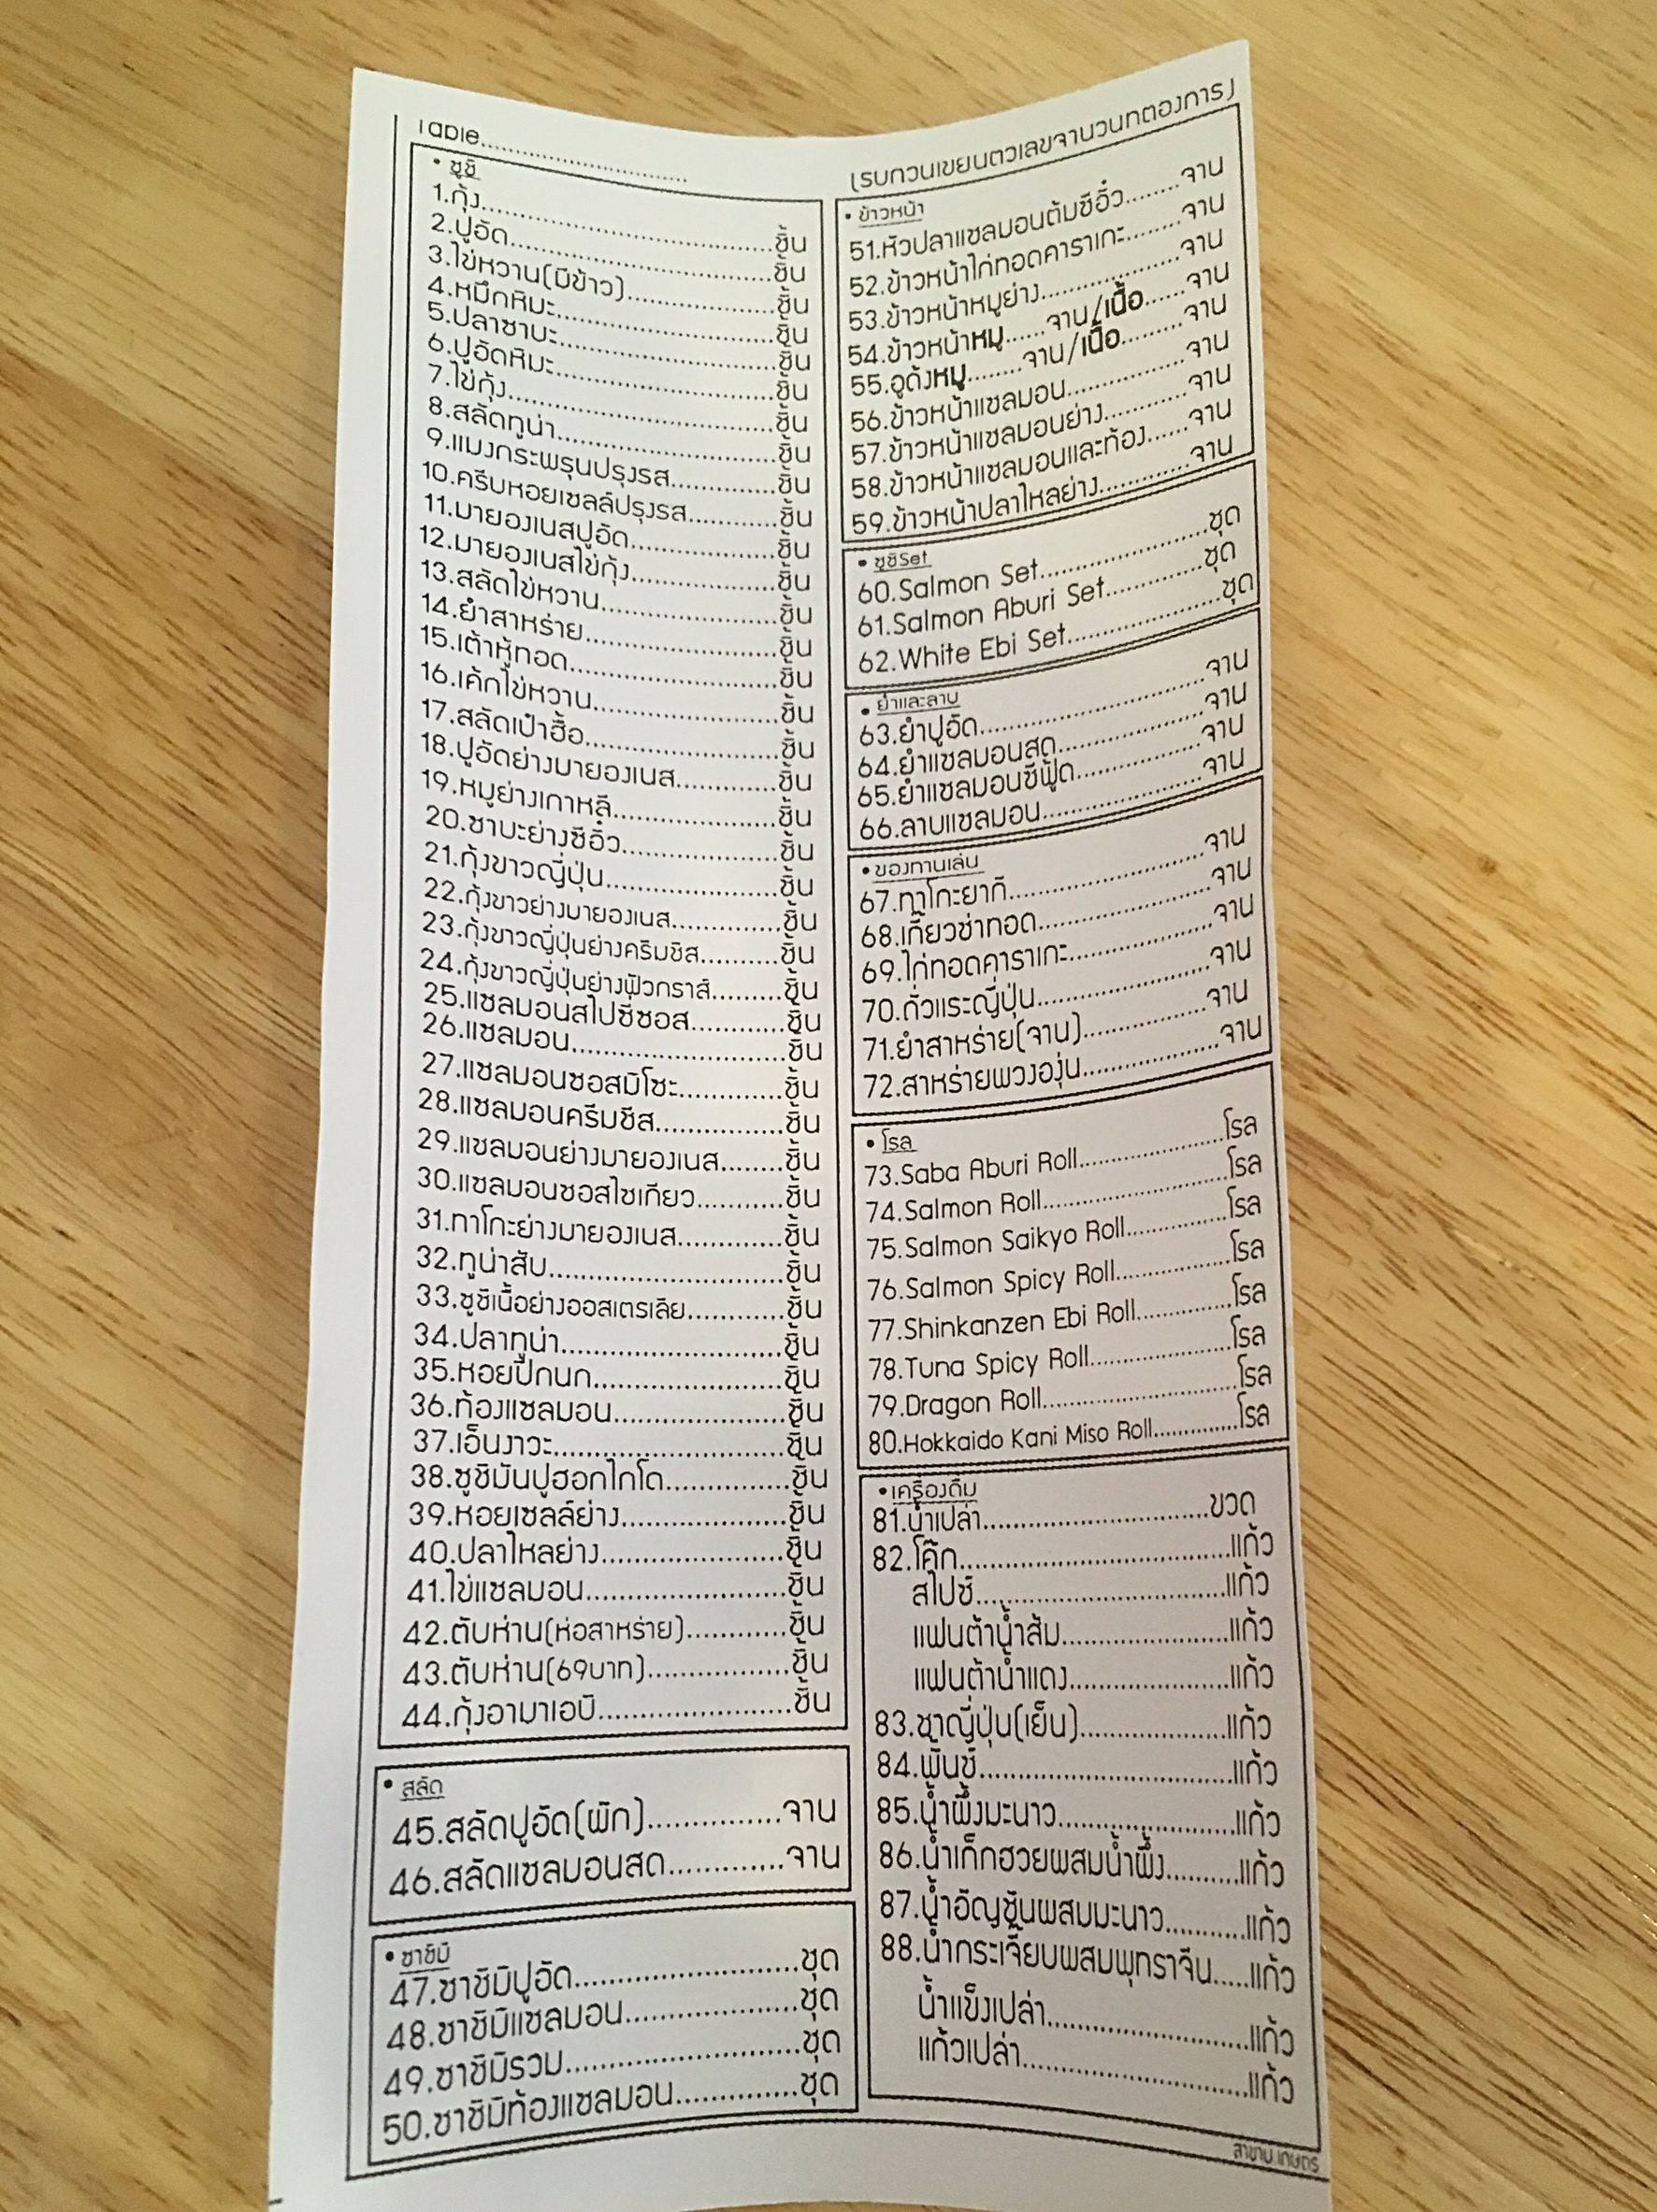 Table
• ซูชิ
1.กุ้ง..............ชิ้น
2.ปูอัด..............ชิ้น
3.ไข่หวาน(มีข้าว)..............ชิ้น
4.หมึกหิมะ..............ชิ้น
5.ปลาซาบะ..............ชิ้น
6.ปูอัดหิมะ..............ชิ้น
7.ไข่กุ้ง..............ชิ้น
8.สลัดทูน่า..............ชิ้น
9.แมงกระพรุนปรุงรส..............ชิ้น
10.ครีบหอยเชลล์ปรุงรส............ชิ้น
11.มายองเนสปูอัด..............ชิ้น
12.มายองเนสไข่กุ้ง..............ชิ้น
13.สลัดไข่หวาน..............ชิ้น
14.ยำสาหร่าย..............ชิ้น
15.เต้าหู้ทอด..............ชิ้น
16.เค้กไข่หวาน..............ชิ้น
17.สลัดเป๋าฮื้อ..............ชิ้น
18.ปูอัดย่างมายองเนส..............ชิ้น
19.หมูย่างเกาหลี..............ชิ้น
20.ซาบะย่างซีอิ๋ว..............ชิ้น
21.กุ้งขาวญี่ปุ่น..............ชิ้น
22.กุ้งขาวย่างมายองเนส..............ชิ้น
23.กุ้งขาวญี่ปุ่นย่างครีมชีส..........ชิ้น
24.กุ้งขาวญี่ปุ่นย่างฟัวกราส์.........ชิ้น
25.แซลมอนสไปซี่ซอส............ชิ้น
26.แซลมอน..............ชิ้น
27.แซลมอนซอสมิโซะ.............ชิ้น
28.แซลมอนครีมชีส..............ชิ้น
29.แซลมอนย่างมายองเนส........ชิ้น
30.แซลมอนซอสไซเกียว...........ชิ้น
31.ทาโกะย่างมายองเนส.............ชิ้น
32.ทูน่าสับ..............ชิ้น
33.ซูชิเนื้อย่างออสเตรเลีย............ชิ้น
34.ปลาทูน่า..............ชิ้น
35.หอยปีกนก..............ชิ้น
36.ท้องแซลมอน..............ชิ้น
37.เอ็นงาวะ..............ชิ้น
38.ซูชิมันปูฮอกไกโด..............ชิ้น
39.หอยเชลล์ย่าง..............ชิ้น
40.ปลาไหลย่าง..............ชิ้น
41.ไข่แซลมอน..............ชิ้น
42.ตับห่าน(ห่อสาหร่าย)............ชิ้น
43.ตับห่าน(69บาท)..............ชิ้น
44.กุ้งอามาเอบิ..............ชิ้น
• สลัด
45.สลัดปูอัด(ผัก)..............จาน
46.สลัดแซลมอนสด............จาน
• ซาชิมิ
47.ซาชิมิปูอัด..............ชุด
48.ซาชิมิแซลมอน..............ชุด
49.ซาชิมิรวม..............ชุด
50.ซาชิมิท้องแซลมอน.............ชุด
(รบกวนเขียนตัวเลขจำนวนที่ต้องการ)
• ข้าวหน้า
51.หัวปลาแซลมอนต้มซีอิ๋ว.......จาน
52.ข้าวหน้าไก่ทอดคาราเกะ........จาน
53.ข้าวหน้าหมูย่าง..............จาน
54.ข้าวหน้าหมู......จาน/เนื้อ......จาน
55.อูด้งหมู........จาน/เนื้อ.........จาน
56.ข้าวหน้าแซลมอน..............จาน
57.ข้าวหน้าแซลมอนย่าง............จาน
58.ข้าวหน้าแซลมอนและท้อง......จาน
59.ข้าวหน้าปลาไหลย่าง............จาน
• ซูชิSet
60.Salmon Set..............ชุด
61.Salmon Aburi Set............ชุด
62.White Ebi Set..............ชุด
• ยำและลาบ
63.ยำปูอัด..............จาน
64.ยำแซลมอนสด..............จาน
65.ยำแซลมอนซีฟู้ด..............จาน
66.ลาบแซลมอน..............จาน
• ของทานเล่น
67.ทาโกะยากิ..............จาน
68.เกี๊ยวซ่าทอด..............จาน
69.ไก่ทอดคาราเกะ..............จาน
70.ถั่วแระญี่ปุ่น..............จาน
71.ยำสาหร่าย(จาน)..............จาน
72.สาหร่ายพวงองุ่น..............จาน
• โรล
73.Saba Aburi Roll..............โรล
74.Salmon Roll..............โรล
75.Salmon Saikyo Roll..............โรล
76.Salmon Spicy Roll..............โรล
77.Shinkanzen Ebi Roll.............โรล
78.Tuna Spicy Roll..............โรล
79.Dragon Roll..............โรล
80.Hokkaido Kani Miso Roll.............โรล
• เครื่องดื่ม
81.น้ำเปล่า..............ขวด
82.โค๊ก..............แก้ว
สไปซ์..............แก้ว
แฟนต้าน้ำส้ม..............แก้ว
แฟนต้าน้ำแดง..............แก้ว
83.ชาญี่ปุ่น(เย็น)..............แก้ว
84.พั้นช์..............แก้ว
85.น้ำผึ้งมะนาว..............แก้ว
86.น้ำเก็กฮวยผสมน้ำผึ้ง..........แก้ว
87.น้ำอัญชันผสมมะนาว...........แก้ว
88.น้ำกระเจี๊ยบผสมพุทราจีน.....แก้ว
น้ำแข็งเปล่า..............แก้ว
แก้วเปล่า..............แก้ว
สาขาม.เกษตร